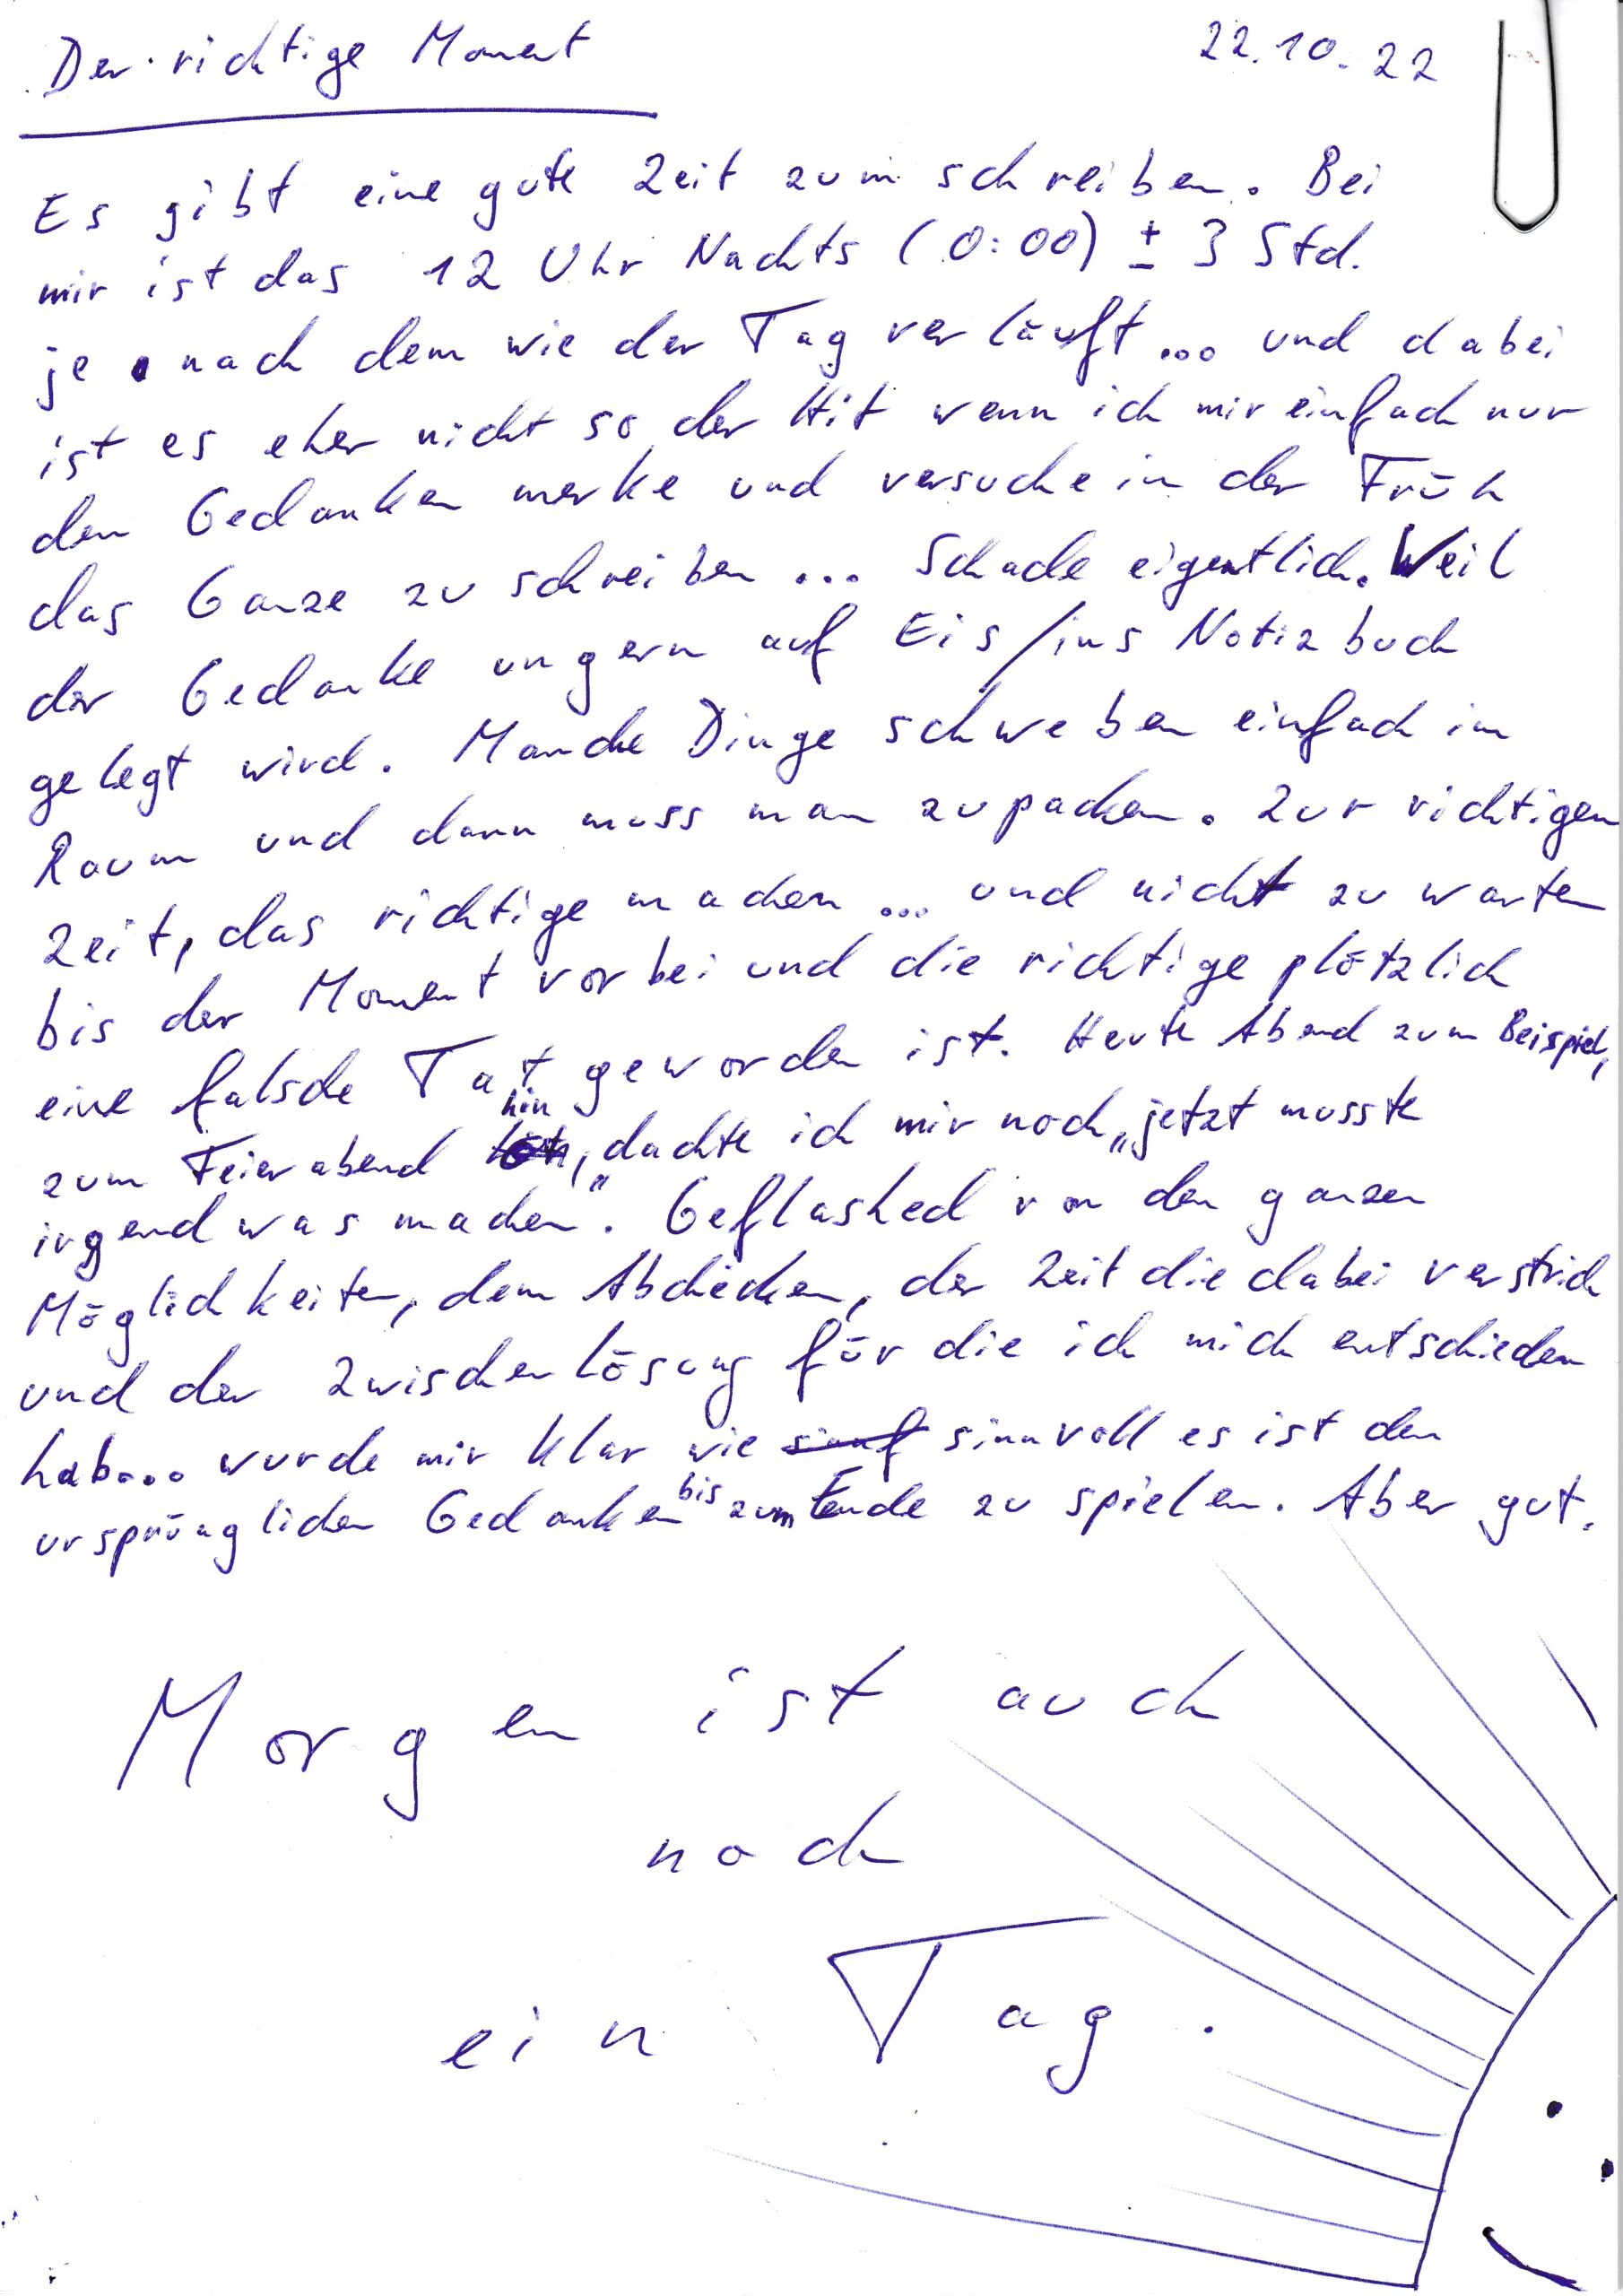 Der richtige Moment 22.10.22
Es gibt eine gute Zeit zum schreiben. Bei
mir ist das 12 Uhr Nachts (0:00) ± 3 Std.
je nach dem wie der Tag verläuft ... und dabei
ist es eher nicht so der Hit wenn ich mir einfach nur
den Gedanken merke und versuche in der Früh
das Ganze zu schreiben ... Schade eigentlich. Weil
der Gedanke ungern auf Eis/ins Notizbuch
gelegt wird. Manche Dinge schweben einfach im
Raum und dann muss man zupacken. Zur richtigen
Zeit, das richtige machen ... und nicht zu warten
bis der Moment vorbei und die richtige plötzlich
eine falsche Tat geworden ist. Heute Abend zum Beispiel,
zum Feierabend hin, dachte ich mir noch „jetzt musste
irgendwas machen". Geflashed von den ganzen
Möglichkeiten, dem Abchecken, der Zeit die dabei verstrich
und der Zwischenlösung für die ich mich entschieden
hab... wurde mir klar wie sinnvoll es ist den
ursprünglichen Gedanken bis zum Ende zu spielen. Aber gut.
Morgen ist auch
noch
ein Tag.